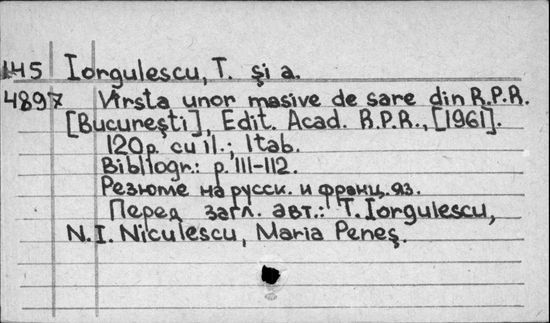 145 Iorgulescu, T. și a.
4897 Vîrsta unor masive de sare din R.P.R.
[București], Edit. Acad. R.P.R., [1961].
120p. cu il.; 1tab.
Bibliogr.: p. 111-112.
Резюме на русск. и франц. яз.
Перед загл. авт.: T. Iorgulescu,
N.I. Niculescu, Maria Peneș.